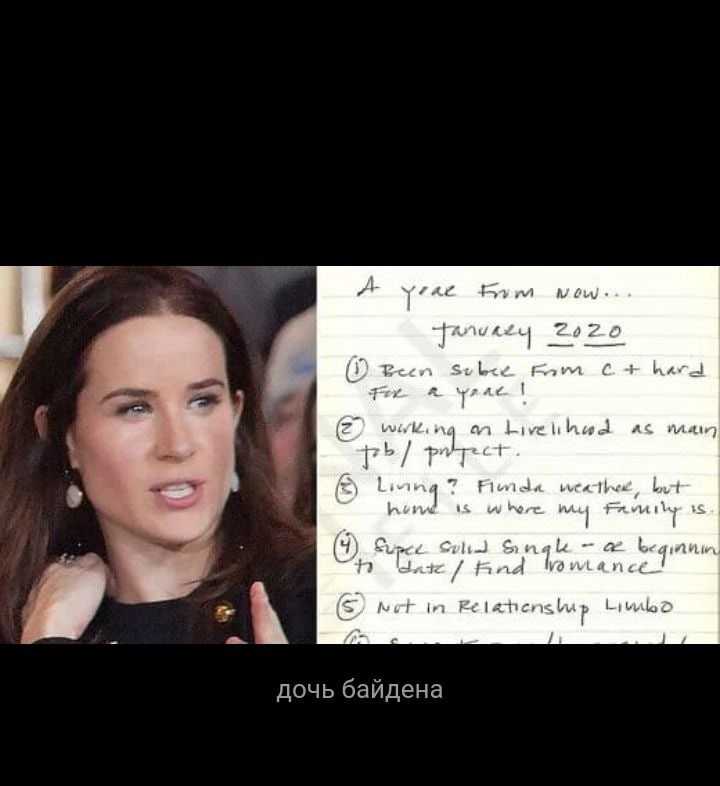 A year from now...
January 2020
① Been sober from C + hard
for a year!
② working on Livelihood as main
job / project.
③ Living? Florida weather, but
home is where my family is.
④ Super solid single - or beginnin
to date / find romance
⑤ Not in Relationship Limbo
дочь байдена